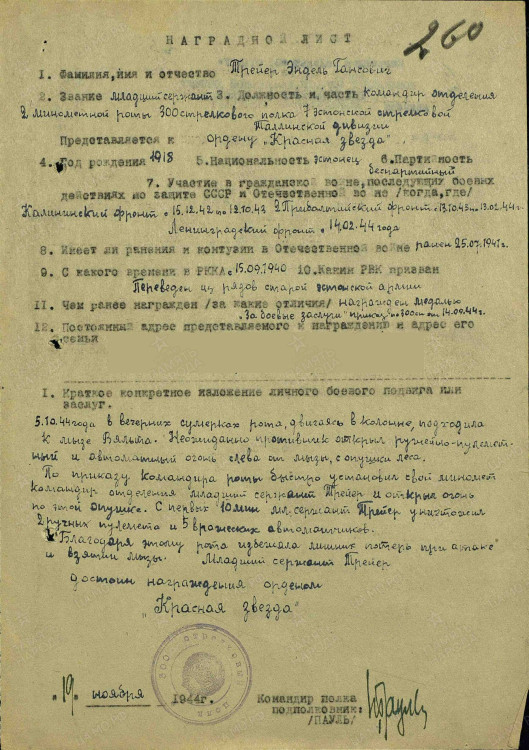 НАГРАДНОЙ ЛИСТ
260
1. Фамилия, имя и отчество Трейер Эндель Гансович
2. Звание младший сержант 3. Должность и часть командир отделения
2 минометной роты 300 стрелкового полка 7 эстонской стрелковой
Таллинской дивизии
Представляется к ордену „Красная звезда".
4. Год рождения 1918 5. Национальность эстонец 6. Партийность
беспартийный
7. Участие в гражданской войне, последующих боевых
действиях по защите СССР и Отечественной войне /когда, где/
Калининский фронт с 15.12.42 по 12.10.43 2 Прибалтийский фронт с 13.10.43 по 13.02.44 г.
Ленинградский фронт с 14.02.44 года
8. Имеет ли ранения и контузии в Отечественной войне ранен 25.07.1941 г.
9. С какого времени в РККА с 15.09.1940 10. Каким РВК призван
Переведен из рядов старой эстонской армии
11. Чем ранее награжден /за какие отличия/ награжден медалью
„За боевые заслуги" 14.09.44 г.
12. Постоянный адрес представляемого к награждению и адрес его
семьи
I. Краткое конкретное изложение личного боевого подвига или
заслуг.
5.10.44 года в вечерних сумерках рота, двигаясь в колонне, подходила
к мызе Вяльта. Неожиданно противник открыл ружейно-пулемет-
ный и автоматный огонь слева от мызы, с опушки леса.
По приказу командира роты быстро установил свой миномет
командир отделения младший сержант Трейер и открыл огонь
по этой опушке. С первых 10 мин мл. сержант Трейер уничтожил
2 ручных пулемета и 5 вражеских автоматчиков.
Благодаря этому рота избежала лишних потерь при атаке
и взятии мызы. Младший сержант Трейер
достоин награждения орденом
„Красная звезда"
300 стрелковый полк
„19" ноября 1944г.
Командир полка
подполковник:
/ПАУЛЬ/